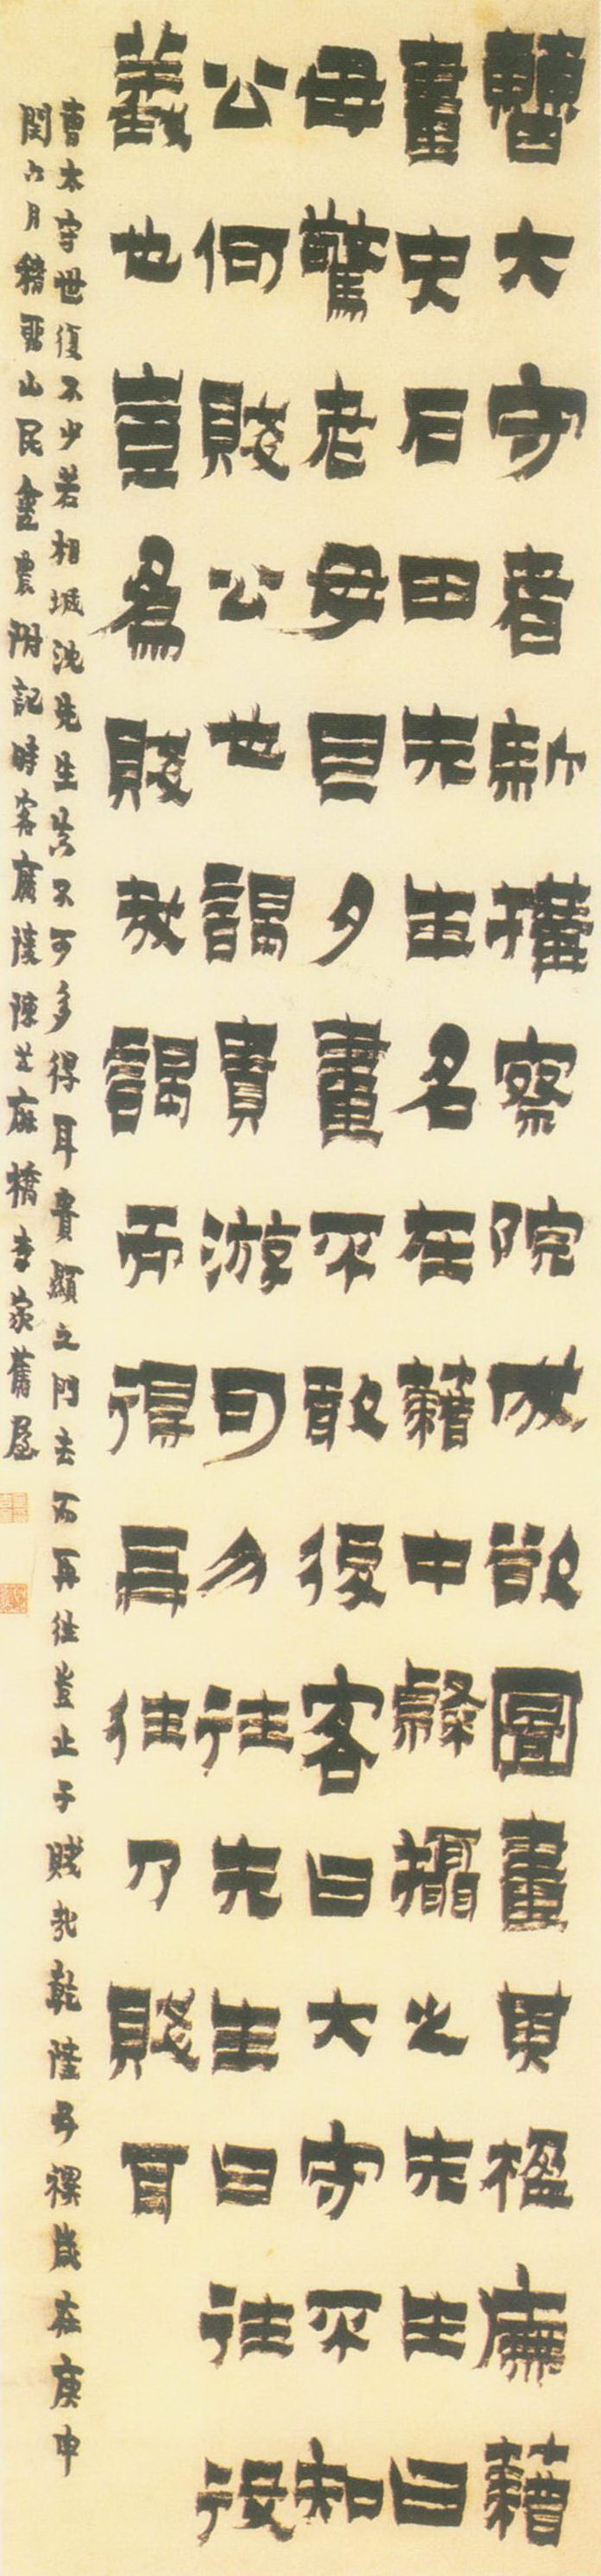 曹大守者新擢察院成欲圖畫其楹廡藉
畫史石田先生名在藉中隸攝之先生曰
毋驚老母旦夕畫不敢後客曰大守不知
公何賤公也謁貴游可勿往先生曰往役
義也豈為賤哉謁而得再往乃賤耳
曹太守世復不少若相城沈先生真不可多得耳貴顯之門去而再往豈止于賤哉乾隆五禩歲在庚申
閏六月稽留山民金農附記時客廣陵陳芝麻橋李家舊屋